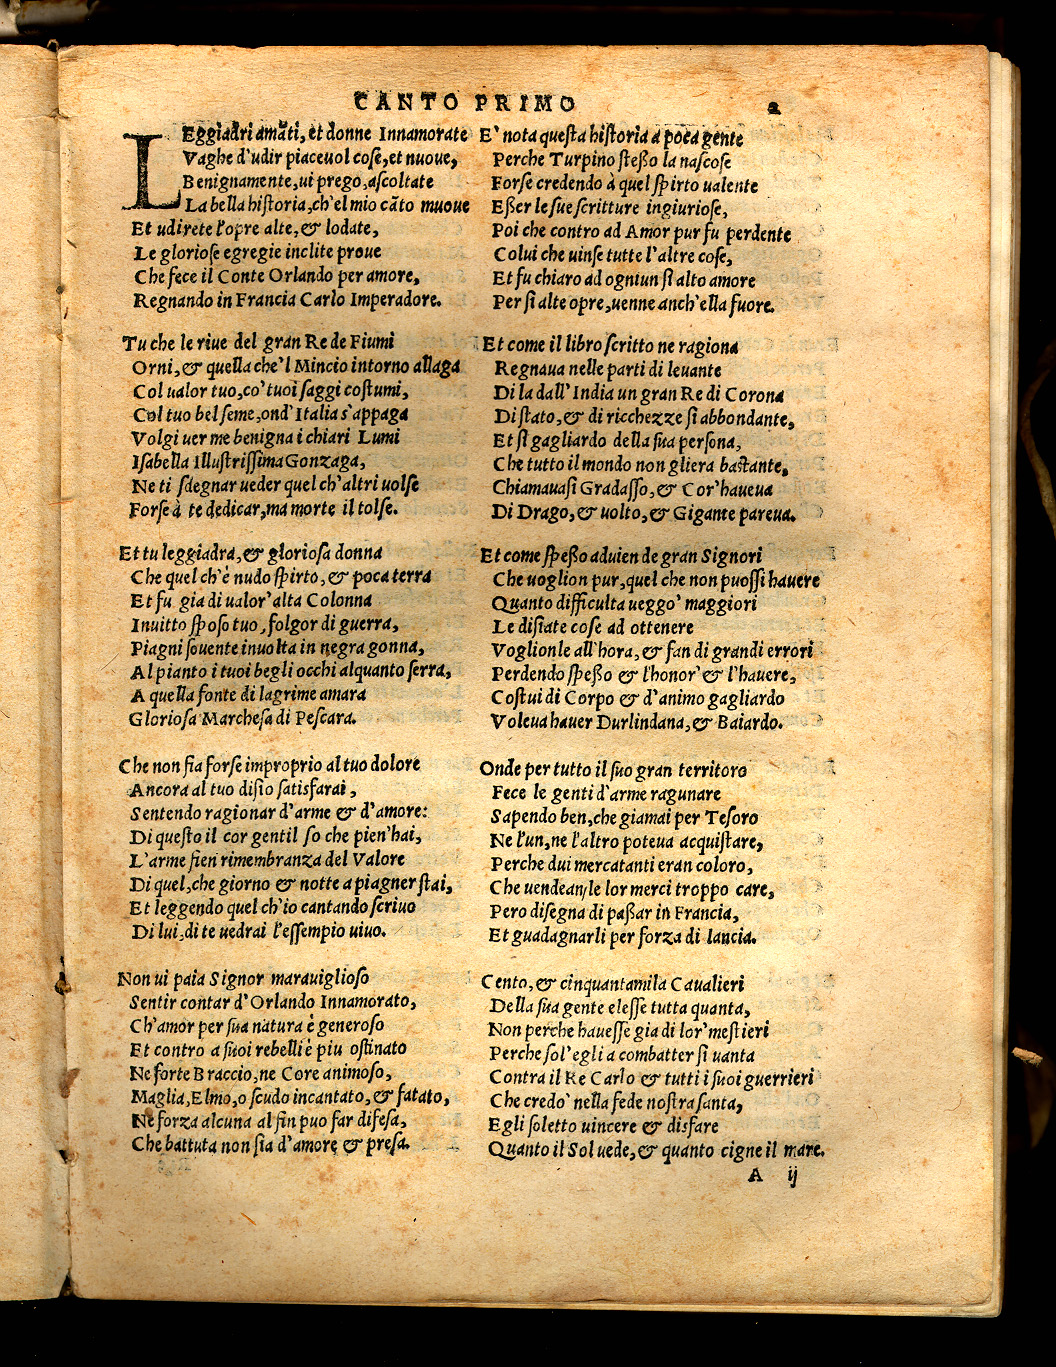 CANTO PRIMO
2
LEggiadri amāti, et donne Innamorate
Vaghe d'udir piaceuol cose, et nuoue,
Benignamente, ui prego, ascoltate
La bella historia, ch'el mio cāto muoue
Et udirete l'opre alte, & lodate,
Le gloriose egregie inclite proue
Che fece il Conte Orlando per amore,
Regnando in Francia Carlo Imperadore.
Tu che le riue del gran Re de Fiumi
Orni, & quella che'l Mincio intorno allaga
Col ualor tuo, co' tuoi saggi costumi,
Col tuo bel seme, ond'Italia s'appaga
Volgi uer me benigna i chiari Lumi
Isabella Illustrissima Gonzaga,
Ne ti sdegnar ueder quel ch'altri uolse
Forse à te dedicar, ma morte il tolse.
Et tu leggiadra, & gloriosa donna
Che quel ch'è nudo spirto, & poca terra
Et fu gia di ualor'alta Colonna
Inuitto sposo tuo, folgor di guerra,
Piagni souente inuolta in negra gonna,
Al pianto i tuoi begli occhi alquanto serra,
A quella fonte di lagrime amara
Gloriosa Marchesa di Pescara.
Che non fia forse improprio al tuo dolore
Ancora al tuo disio satisfarai,
Sentendo ragionar d'arme & d'amore:
Di questo il cor gentil so che pien'hai,
L'arme fien rimembranza del Valore
Di quel, che giorno & notte a piagner stai,
Et leggendo quel ch'io cantando scriuo
Di lui, di te uedrai l'essempio uiuo.
Non ui paia Signor marauiglioso
Sentir contar d'Orlando Innamorato,
Ch'amor per sua natura è generoso
Et contro a suoi rebelli è piu ostinato
Ne forte Braccio, ne Core animoso,
Maglia, Elmo, o scudo incantato, & fatato,
Ne forza alcuna al fin puo far difesa,
Che battuta non sia d'amore & presa.
E' nota questa historia a poca gente
Perche Turpino stesso la nascose
Forse credendo à quel spirto ualente
Esser le sue scritture ingiuriose,
Poi che contro ad Amor pur fu perdente
Colui che uinse tutte l'altre cose,
Et fu chiaro ad ogniun si alto amore
Per si alte opre, uenne anch'ella fuore.
Et come il libro scritto ne ragiona
Regnaua nelle parti di leuante
Di la dall'India un gran Re di Corona
Di stato, & di ricchezze si abbondante,
Et si gagliardo della sua persona,
Che tutto il mondo non gliera bastante,
Chiamauasi Gradasso, & Cor'haueua
Di Drago, & uolto, & Gigante pareua.
Et come spesso aduien de gran Signori
Che uoglion pur, quel che non puossi hauere
Quanto difficulta ueggo' maggiori
Le disiate cose ad ottenere
Voglionle all'hora, & fan di grandi errori
Perdendo spesso & l'honor' & l'hauere,
Costui di Corpo & d'animo gagliardo
Voleua hauer Durlindana, & Baiardo.
Onde per tutto il suo gran territoro
Fece le genti d'arme ragunare
Sapendo ben, che giamai per Tesoro
Ne l'un, ne l'altro poteua acquistare,
Perche dui mercatanti eran coloro,
Che uendean le lor merci troppo care,
Pero disegna di passar in Francia,
Et guadagnarli per forza di lancia.
Cento, & cinquantamila Caualieri
Della sua gente elesse tutta quanta,
Non perche hauesse gia di lor'mestieri
Perche sol'egli a combatter si uanta
Contra il Re Carlo & tutti i suoi guerrieri
Che credo' nella fede nostra santa,
Egli soletto uincere & disfare
Quanto il Sol uede, & quanto cigne il mare.
A ij